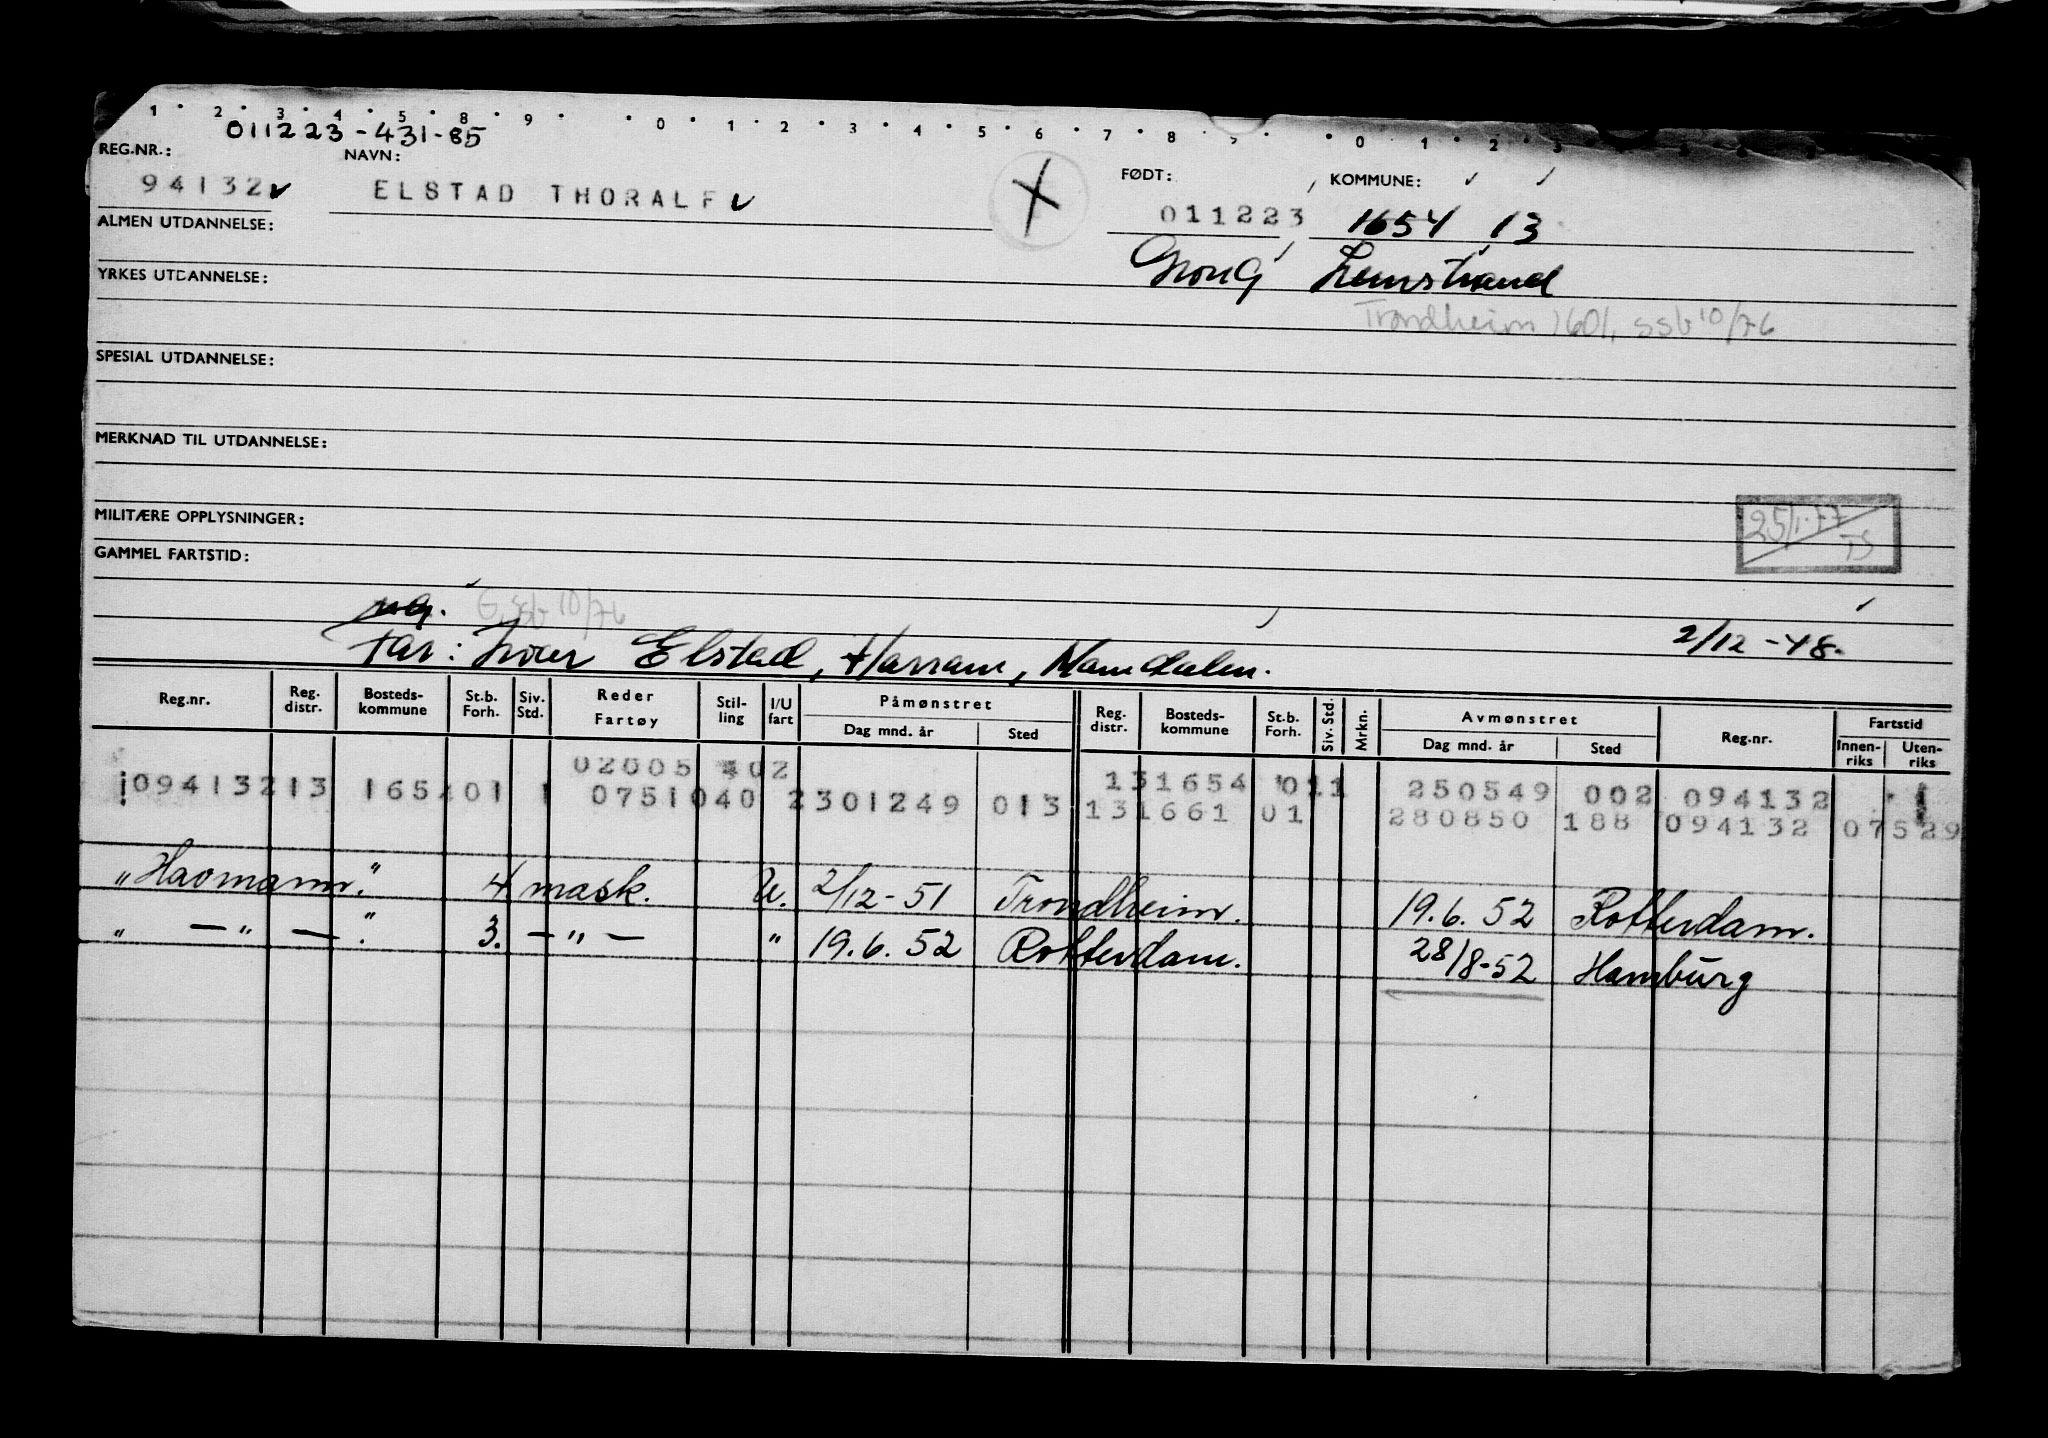 1 2 3 4 5 8 9 0 1 2 3 4 5 6 7 8 9 0 1 2 3
011223-431-85
REG.NR.: NAVN: FØDT: KOMMUNE:
94132 ELSTAD THORALF 011223 1654 13
ALMEN UTDANNELSE:
Grong Leinstrand
YRKES UTDANNELSE:
Trondheim 1601, ssb 10/76
SPESIAL UTDANNELSE:
MERKNAD TIL UTDANNELSE:
MILITÆRE OPPLYSNINGER:
25/1-77
TS
GAMMEL FARTSTID:
ug. G, ssb 10/76
Far: Iver Elstad, Harran, Namdalen. 2/12-48.
Reg.nr. Reg. distr. Bosteds-kommune St.b. Forh. Siv. Std. Reder Fartøy Stil-ling I/U fart Påmønstret Dag mnd. år Sted Reg. distr. Bosteds-kommune St.b. Forh. Siv. Std. Mrkn. Avmønstret Dag mnd. år Sted Reg.nr. Fartstid Innen-riks Uten-riks
02005 402 131654 011 250549 002 094132
109413213 165401 1 0751040 2301249 013 131661 01 280850 188 094132 07529
"Havmann." 4 mask. U. 2/12-51 Trondheim. 19.6.52 Rotterdam.
" — " — ." 3. — " — " 19.6.52 Rotterdam. 28/8-52 Hamburg